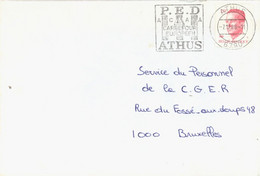 P.E.D
ATHUS
Service du Personnel
de la C.G.E.R
Rue du Fossé-aux-loups 48
1000 Bruxelles